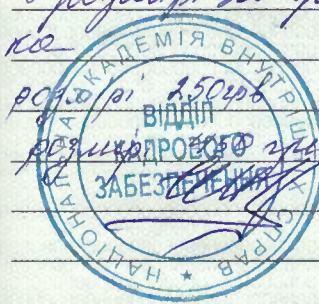 розмірі
ка
розмірі 250грн
розмірі грн
НАЦІОНАЛЬНА АКАДЕМІЯ ВНУТРІШНІХ СПРАВ
ВІДДІЛ
КАДРОВОГО
ЗАБЕЗПЕЧЕННЯ